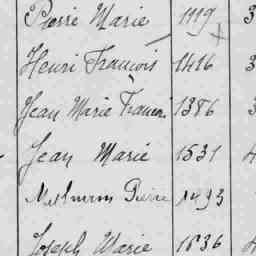 Pierre Marie 1119 3
Henri François 1416 3
Jean Marie François 1386 3
Jean Marie 1531 4
Pierre
Joseph Marie 1836 4